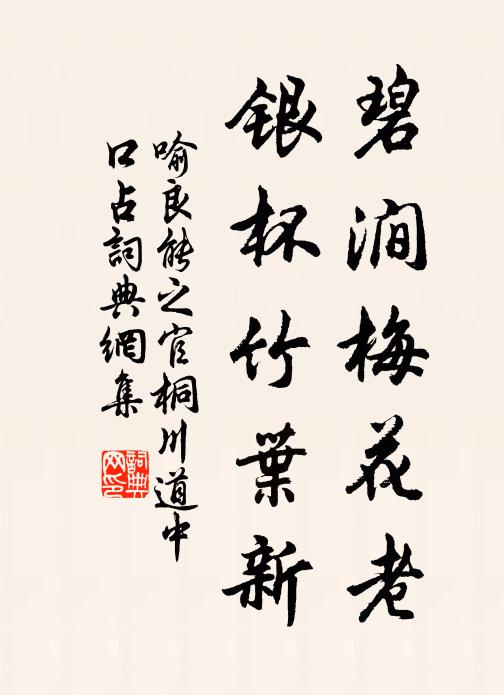 碧澗梅花老
銀杯竹葉新
喻良能之官桐川道中
口占詞典網集
詞典
网印